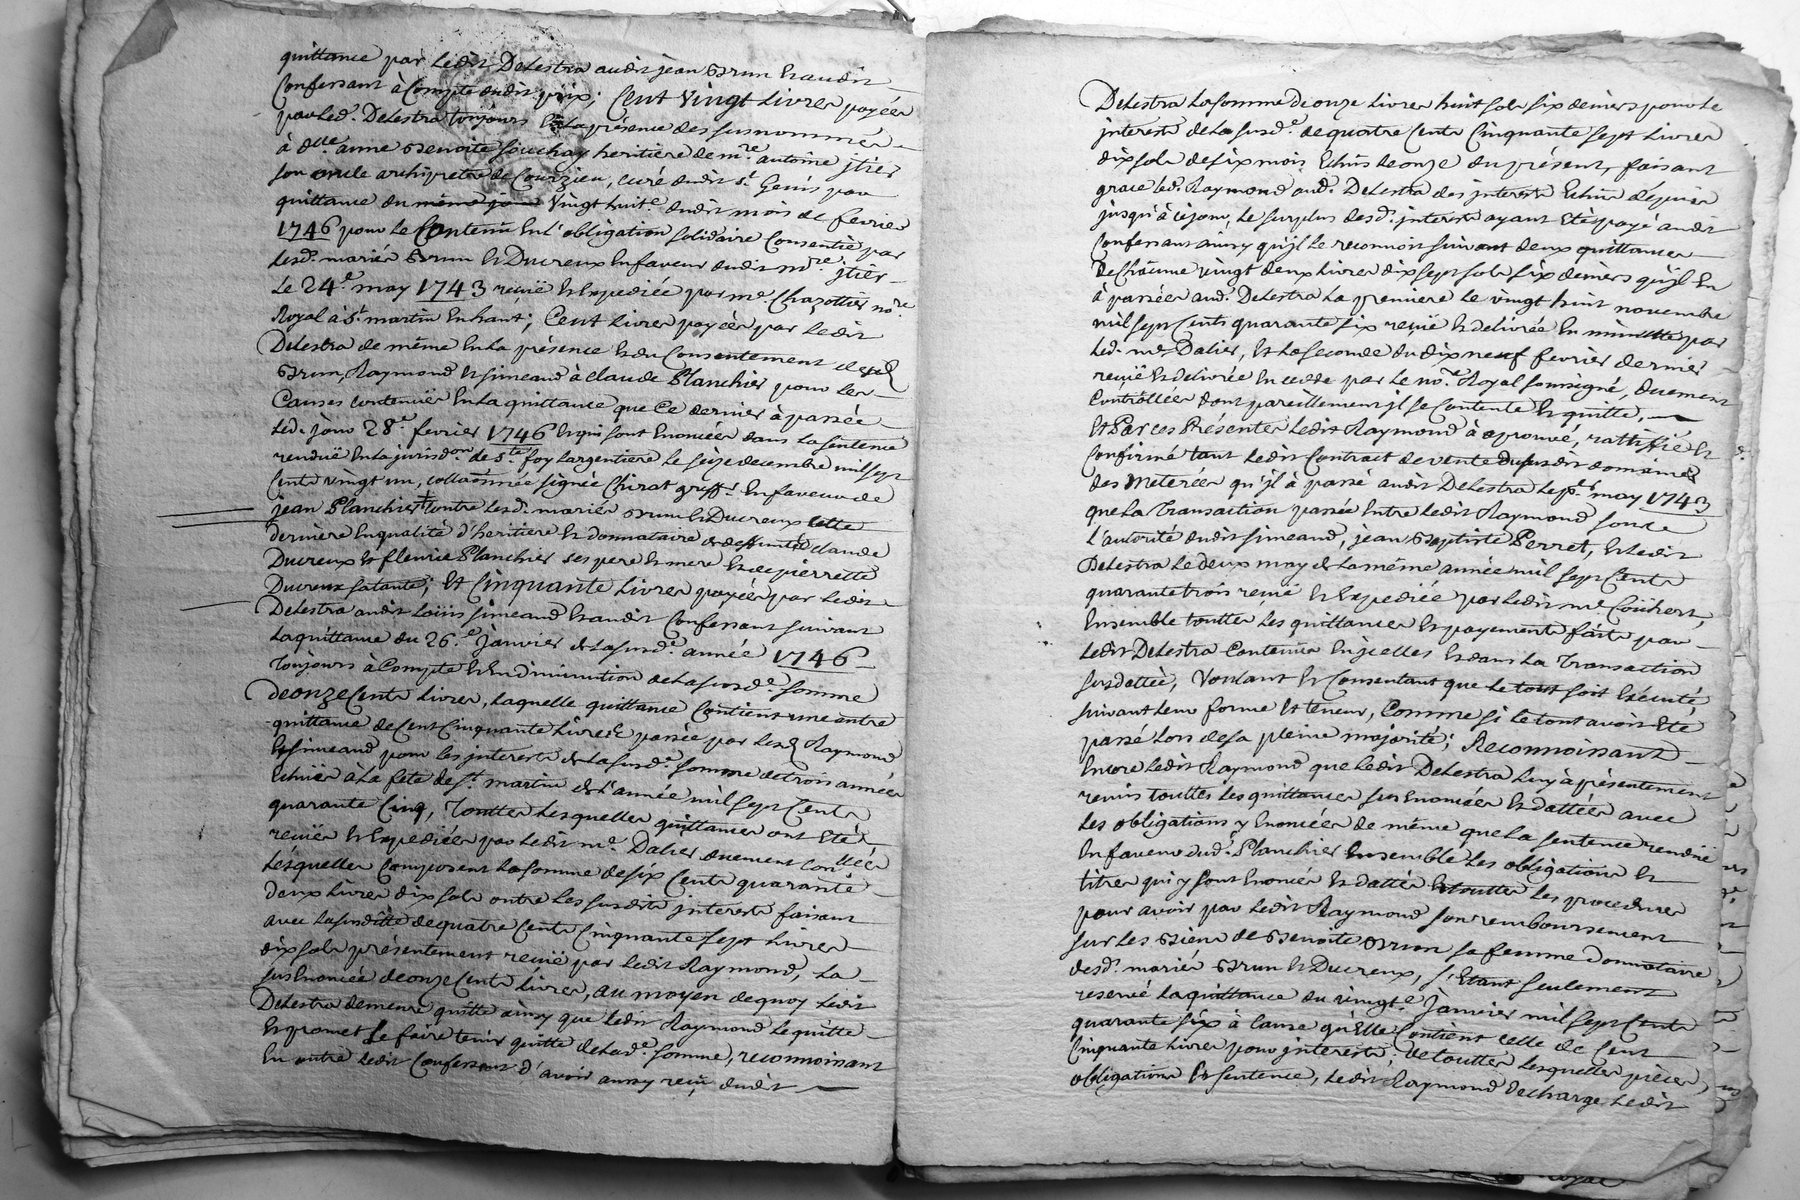 quittance par ledit Delestra audit jean Brun et audit
Confessant à Compte dudit prix; Cent Vingt Livres payées
par led.t Delestra toujours En la présence des susnommés
à d.lle anne Benoite Souchay heritiere de m.re antoine jtier
son oncle archipretre de Courzieu, curé dudit s.t Genis par
quittance du même jour Vingt huit.e dudit mois de fevrier
1746 pour le Contenu En l'obligation solidaire Consentie par
lesd. mariés Brun et Ducreux En faveur dudit m.re jtier
Le 24.e may 1743 reçuë et Expediée par m.e Chazottier no.re
Royal à s.t martin En haut; Cent livres payées par ledit
Delestra de même En la présence et du Consentement desd.
Brun, Raymond et simeand à claude Planchier pour les
Causes contenuës En la quittance que Ce dernier à passée
led. jour 28.e fevrier 1746 et qui sont Enoncées dans la sentence
renduë En la jurisd.on de s.te foy largentiere le seize decembre mil sept
Cents vingt un, collationnée signée Chirat greff.r En faveur de
jean Planchier contre lesd. mariés Brun et Ducreux cette
derniere En qualité d'heritiere et donnataire de deffunts claude
Ducreux et fleurie Planchier ses pere et mere et de pierrette
Ducreux sa tante; Et Cinquante Livres payées par ledit
Delestra audit Loüis simeand et audit Confessant suivant
la quittance du 26.e Janvier de la susd.e année 1746
Toujours à Compte et En diminution de la susd.e somme
de onze Cents Livres, laquelle quittance Contient une autre
quittance de Cent Cinquante Livres passée par lesd. Raymond
et simeand pour les interests de la susd.e somme de trois années
Echuës à la fete de s.t martin de l'année mil sept Cents
quarante Cinq, Touttes lesquelles quittances ont Eté
reçuës et Expediées par ledit m.e Dalier duement con.llées
Lesquelles Composent la somme de six Cents quarante
deux livres dix sols outre les susdits jnterests faisant
avec la susditte de quatre Cents Cinquante sept livres
dix sols présentement reçuë par ledit Raymond, la
sus Enoncée de onze Cents Livres, au moyen de quoy ledit
Delestra demeure quitte ainsy que ledit Raymond le quitte
Et promet le faire tenir quitte de lad.e somme, reconnoissant
En outre ledit Confessant d'avoir aussy reçu dudit
Delestra la somme de onze Livres huit sols six deniers pour le
interests de la susd.e de quatre Cents Cinquante sept Livres
dix sols de six mois Echus le onze du présent, faisant
grace led. Raymond aud. Delestra des jnterests Echus dépuis
jusqu'à ce jour, le surplus desd. jnterests ayant Eté payé audit
Confessant ainsy qu'jl le reconnoit suivant deux quittances
de Chacune vingt deux Livres dix sept sols six deniers qu'jl En
à passées aud. Delestra la premiere le vingt huit novembre
mil sept Cents quarante six reçuë et delivrée En minutte par
led. m.e Dalier, et la seconde du dix neuf fevrier dernier
reçuë et delivrée En cedde par le no.re Royal soussigné, duement
Controllées dont pareillement jl se Contente et quitte.
Et Par ces Présentes ledit Raymond à aprouvé, rattiffié et
Confirmé tant ledit Contract de vente du susdit domaine
des Meterées qu'jl à passé audit Delestra le p.r may 1743
que la Transaction passée Entre ledit Raymond sous
l'autorité dudit simeand, jean Baptiste Perret, et ledit
Delestra le deux may de la même année mil sept Cents
quarante trois reçuë et Expediée par ledit m.e Coühert,
Ensemble touttes les quittances et payements faits par
ledit Delestra Contenus En jcelles et dans la Transaction
susdattée, Voulant et Consentant que le tout soit Exécuté
suivant leur forme et teneur, Comme si le tout avoit Eté
passé lors de sa pleine majorité; Reconnoissant
Encore ledit Raymond que ledit Delestra luy à présentement
remis touttes les quittances sus Enoncées et dattées avec
les obligations y Enoncées de même que la sentence renduë
En faveur dud. Planchier Ensemble les obligations et
titres qui y sont Enoncés et dattés et touttes les procedures
pour avoir par ledit Raymond son remboursement
sur les Biens de Benoite Brun sa femme donnataire
desd. mariés Brun et Ducreux, s'Etant seulement
reservé la quittance du vingt.e Janvier mil sept Cents
quarante six à Cause qu'Elle Contient celle de Cent
Cinquante livres pour jnterests; de touttes lesquelles pieces,
obligations et sentence, ledit Raymond decharge ledit